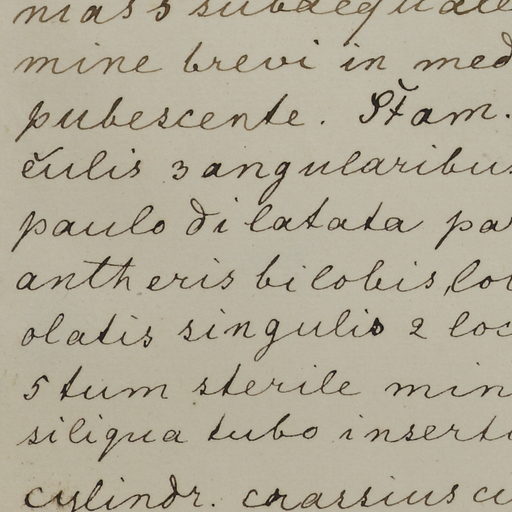 nias 5 subaequale
mine brevi in med
pubescente. Stam.
culis 3 angularibus
paulo dilatata par
antheris bilobis, lo
olatis singulis 2 loc
5tum sterile min
siliqua tubo inserto
cylindr. crassiuscu